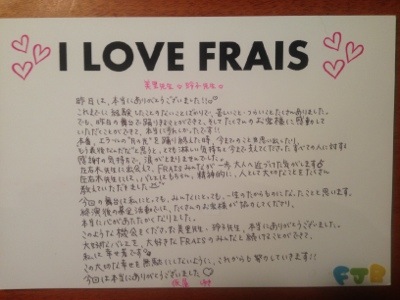 I LOVE FRAIS
美里先生 玲子先生
昨日は、本当にありがとうございました!!
これまでに経験したことのないことばかりで、苦しいこと・つらいこともたくさんありました。
でも、昨日の舞台で踊りきることができて、そしてたくさんのお客様に感動して
いただくことができて、本当にうれしかったです!!
本番、エトワールの"月の光"を踊り終えた時、今までのことを思い出したり、
もう最後なんだなと思うと、とても淋しい気持ちと今まで支えて下さった、すべての人に対する
感謝の気持ちで、涙がとまりませんでした。
先生に出会えて、FRAISみんなが一歩大人に近づけた気がします
先生には、バレエはもちろん、精神的に、人として大切なことをたくさん
教えていただきました
今回の舞台は私にとっても、みんなにとっても、一生のたからものになったことと思います。
終演後の募金活動では、たくさんのお客様が協力してくださり、
本当に心があたたかくなりました。
このような機会をくださった、美里先生・玲子先生、本当にありがとうございました。
大好きなバレエを、大好きなFRAISのみんなと続けることができて、
私は幸せ者です
この大切な幸せを無駄にしないように、これからも努力していきます!!
今回は本当にありがとうございました
FJB